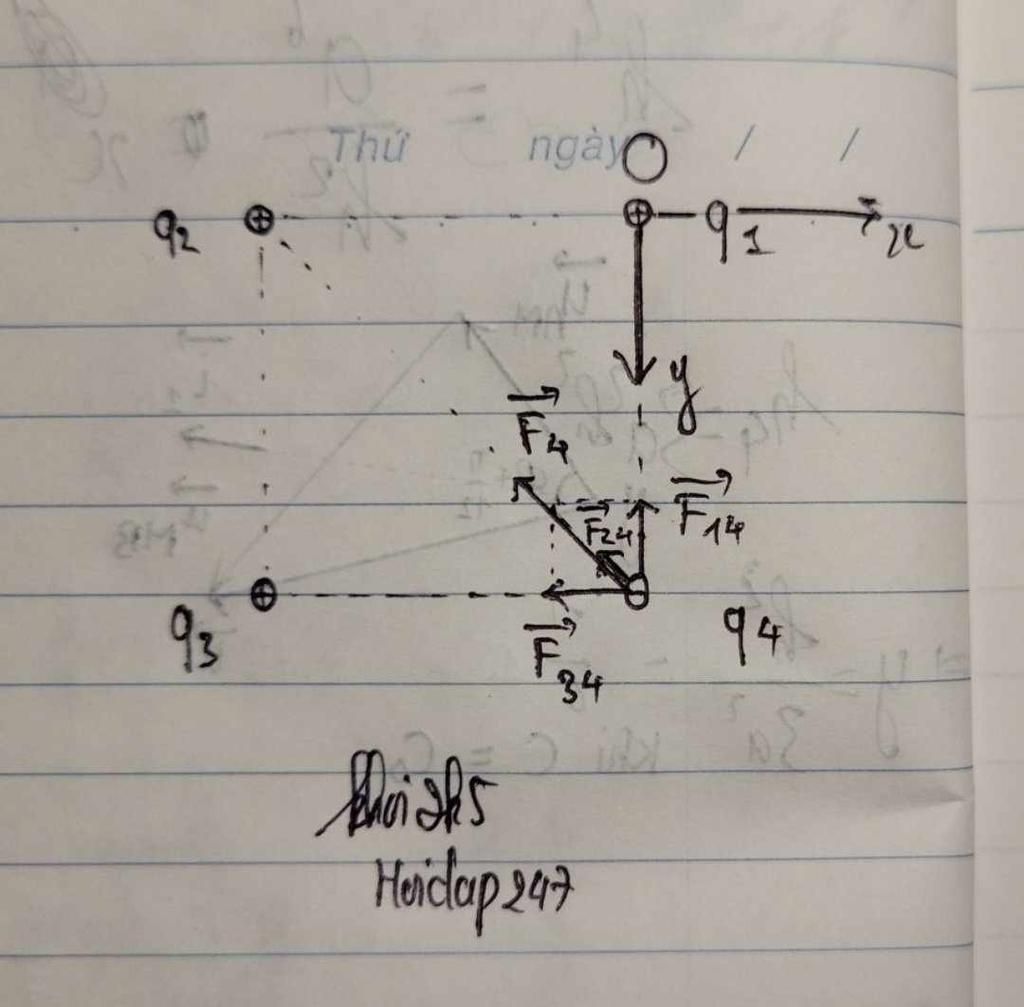 Thứ ngày / /
O
q2 q1 x
y
F4
F14
F24
q3 q4
F34
khoi2k5
Hoidap247